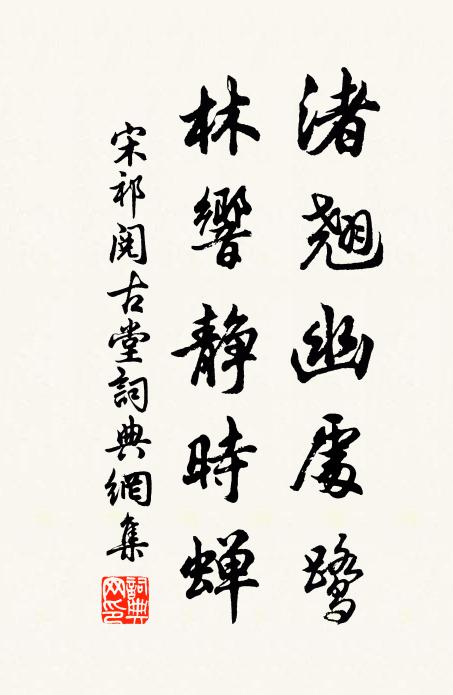 渚翹幽處鷺
林響静時蟬
宋祁閱古堂詞典網集
詞典網印